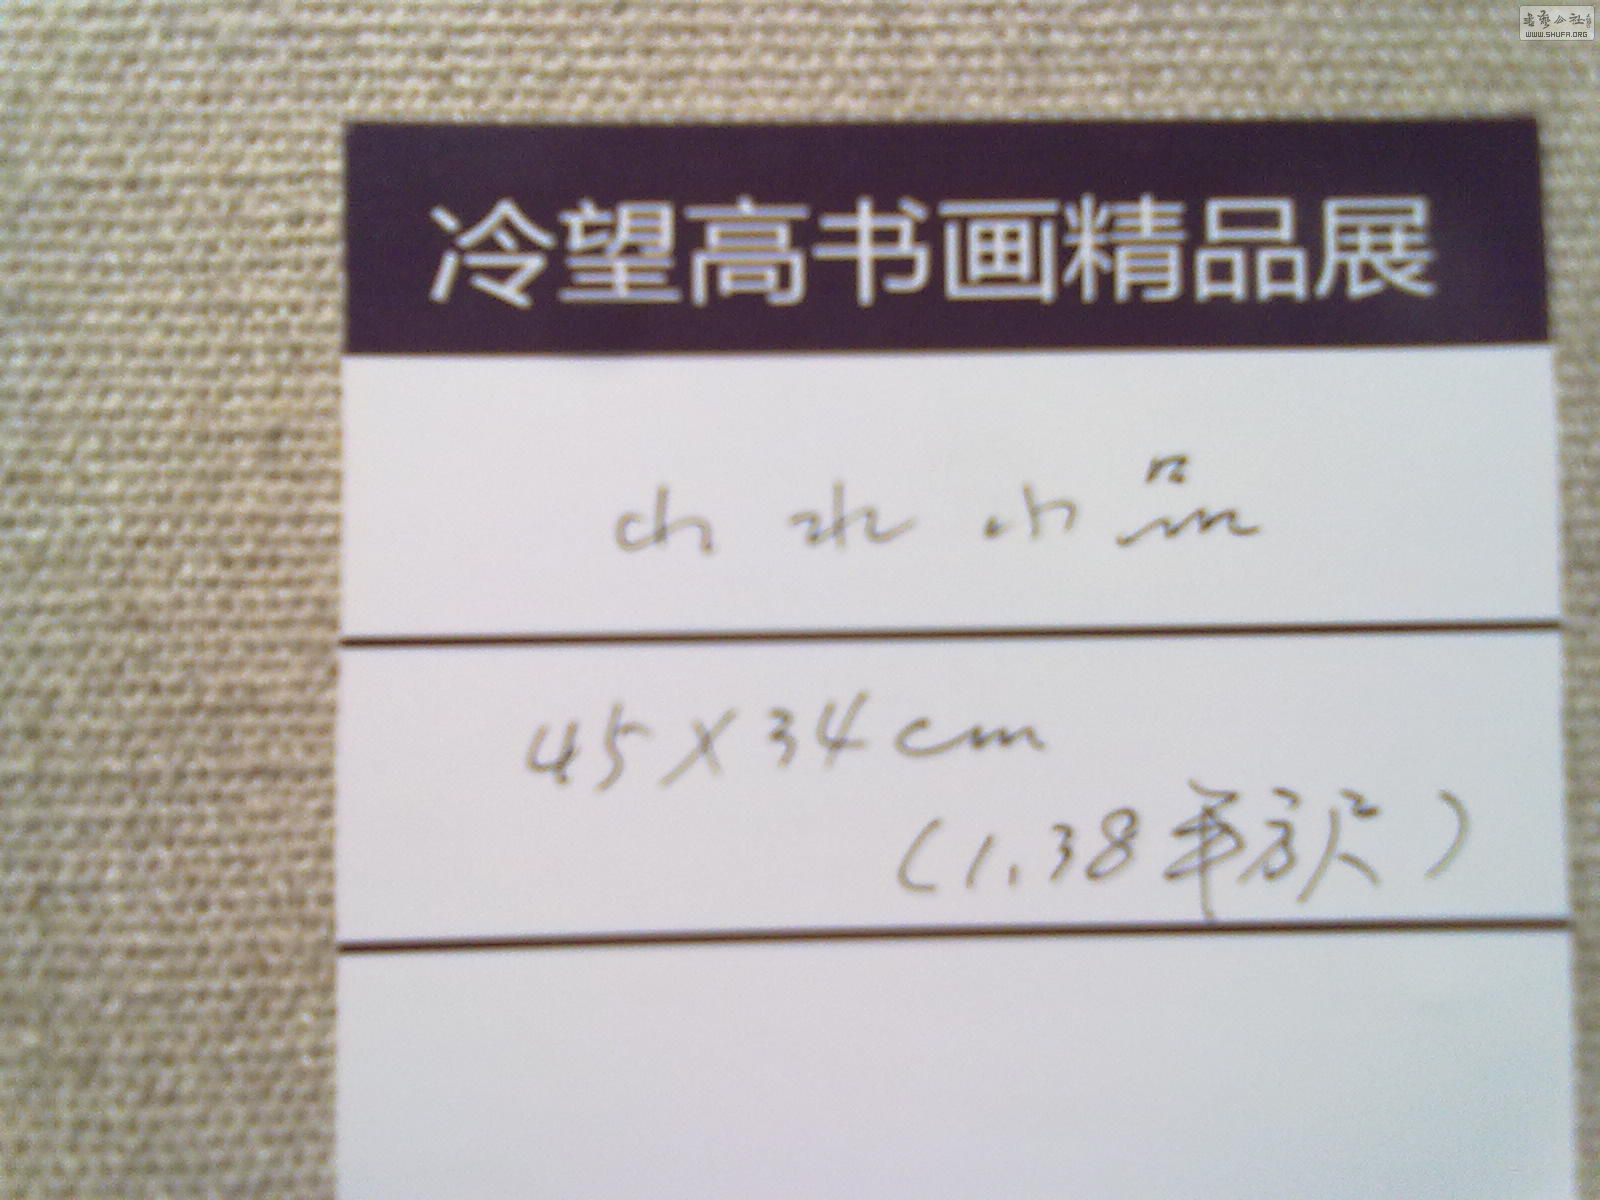 书艺公社
WWW.SHUFA.ORG
冷望高书画精品展
山水小品
45×34cm
(1.38平方尺)